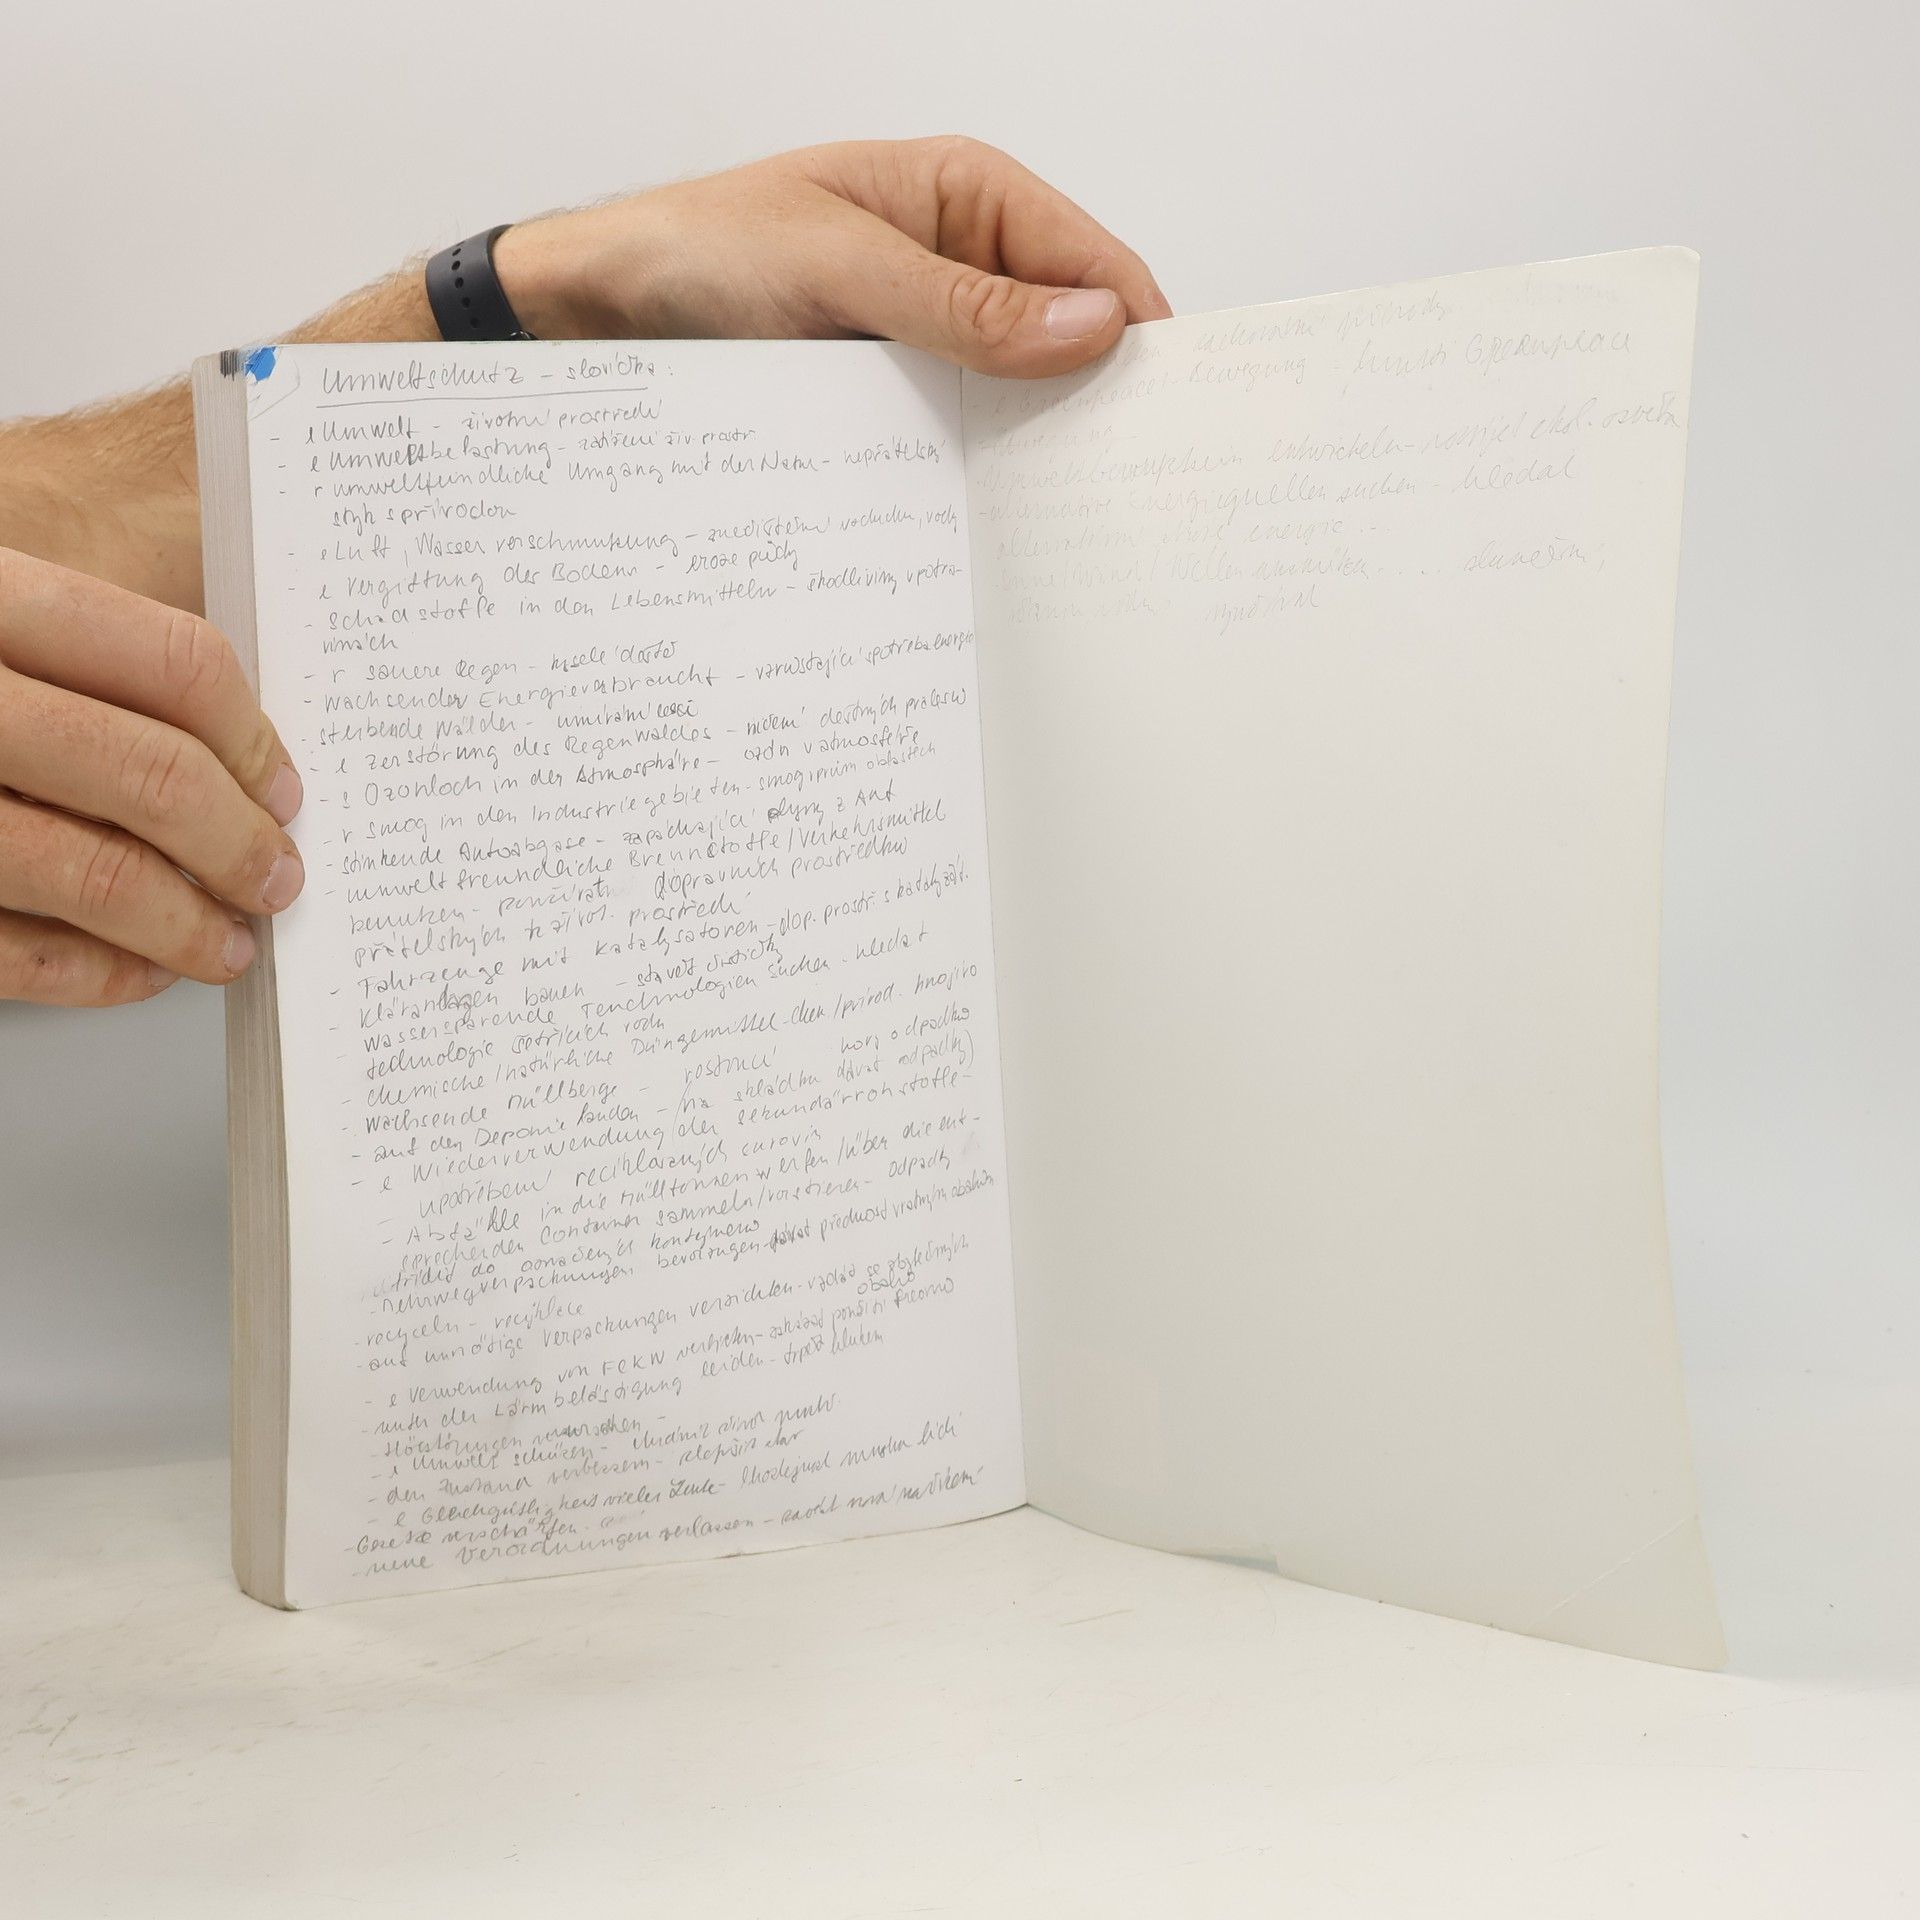 Umweltschutz - slovíčka:
- e Umwelt - životní prostředí
- e Umweltbelastung - zatížení živ. prostř.
- r umweltfeindliche Umgang mit der Natur - nepřátelský
styk s přírodou
- e Luft, Wasser verschmutzung - znečištění vzduchu, vody
- e Vergiftung des Bodens - eroze půdy
- Schadstoffe in den Lebensmitteln - škodliviny v potra-
vinách
- r saure Regen - kyselé deště
- wachsender Energieverbraucht - vzrůstající spotřeba energie
- sterbende Wälder - umírání lesů
- e Zerstörung des Regenwaldes - ničení deštných pralesů
- s Ozonloch in der Atmosphäre - ozón v atmosféře
- r Smog in den Industriegebieten - smog v prům. oblastech
- stinkende Autoabgase - zapáchající plyny z Aut
- umweltfreundliche Brennstoffe/Verkehrsmittel
benutzen - používat dopravních prostředků
přátelských k život. prostředí
- Fahrzeuge mit Katalysatoren - dop. prostř. s katalyzát.
- Kläranlagen bauen - stavět čističky
- wassersparende Technologien suchen - hledat
technologie šetřících vodu
- chemische/natürliche Düngemittel - chem./přírod. hnojivo
- wachsende Müllberge - rostoucí hory odpadků
- auf den Deponie landen - (na skládku dávat odpadky)
- e Wiederverwendung der Sekundärrohstoffe -
upotřebení recyklovaných surovin
- Abfälle in die Mülltonnen werfen/über die ent-
sprechenden Container sammeln/sortieren - odpadky
třídit do označených kontejnerů
- Mehrwegverpackungen bevorzugen - dávat přednost vratným obalům
- recyceln - recyklace
- auf unnötige Verpackungen verzichten - vzdát se zbytečných
obalů
- e Verwendung von FCKW verbieten - zakázat použití freonů
- unter der Lärmbelästigung leiden - trpět hlukem
- Hörstörungen verursachen -
- e Umwelt schützen - chránit život.
- den Zustand verbessern - zlepšit stav
- e Gleichgültigkeit vieler Leute - lhostejnost mnoha lidí
- Gesetze verschärfen -
- neue Verordnungen verlassen - zavést nová nařízení
přírody
- e Greenpeace-Bewegung - hnutí Greenpeace
- Umweltbewusstsein entwickeln - rozvíjet ekol. osvětu
- alternative Energiequellen suchen - hledat
alternativní zdroje energie ...
- Sonne/Wind/Wellen ... sluneční,
využívat